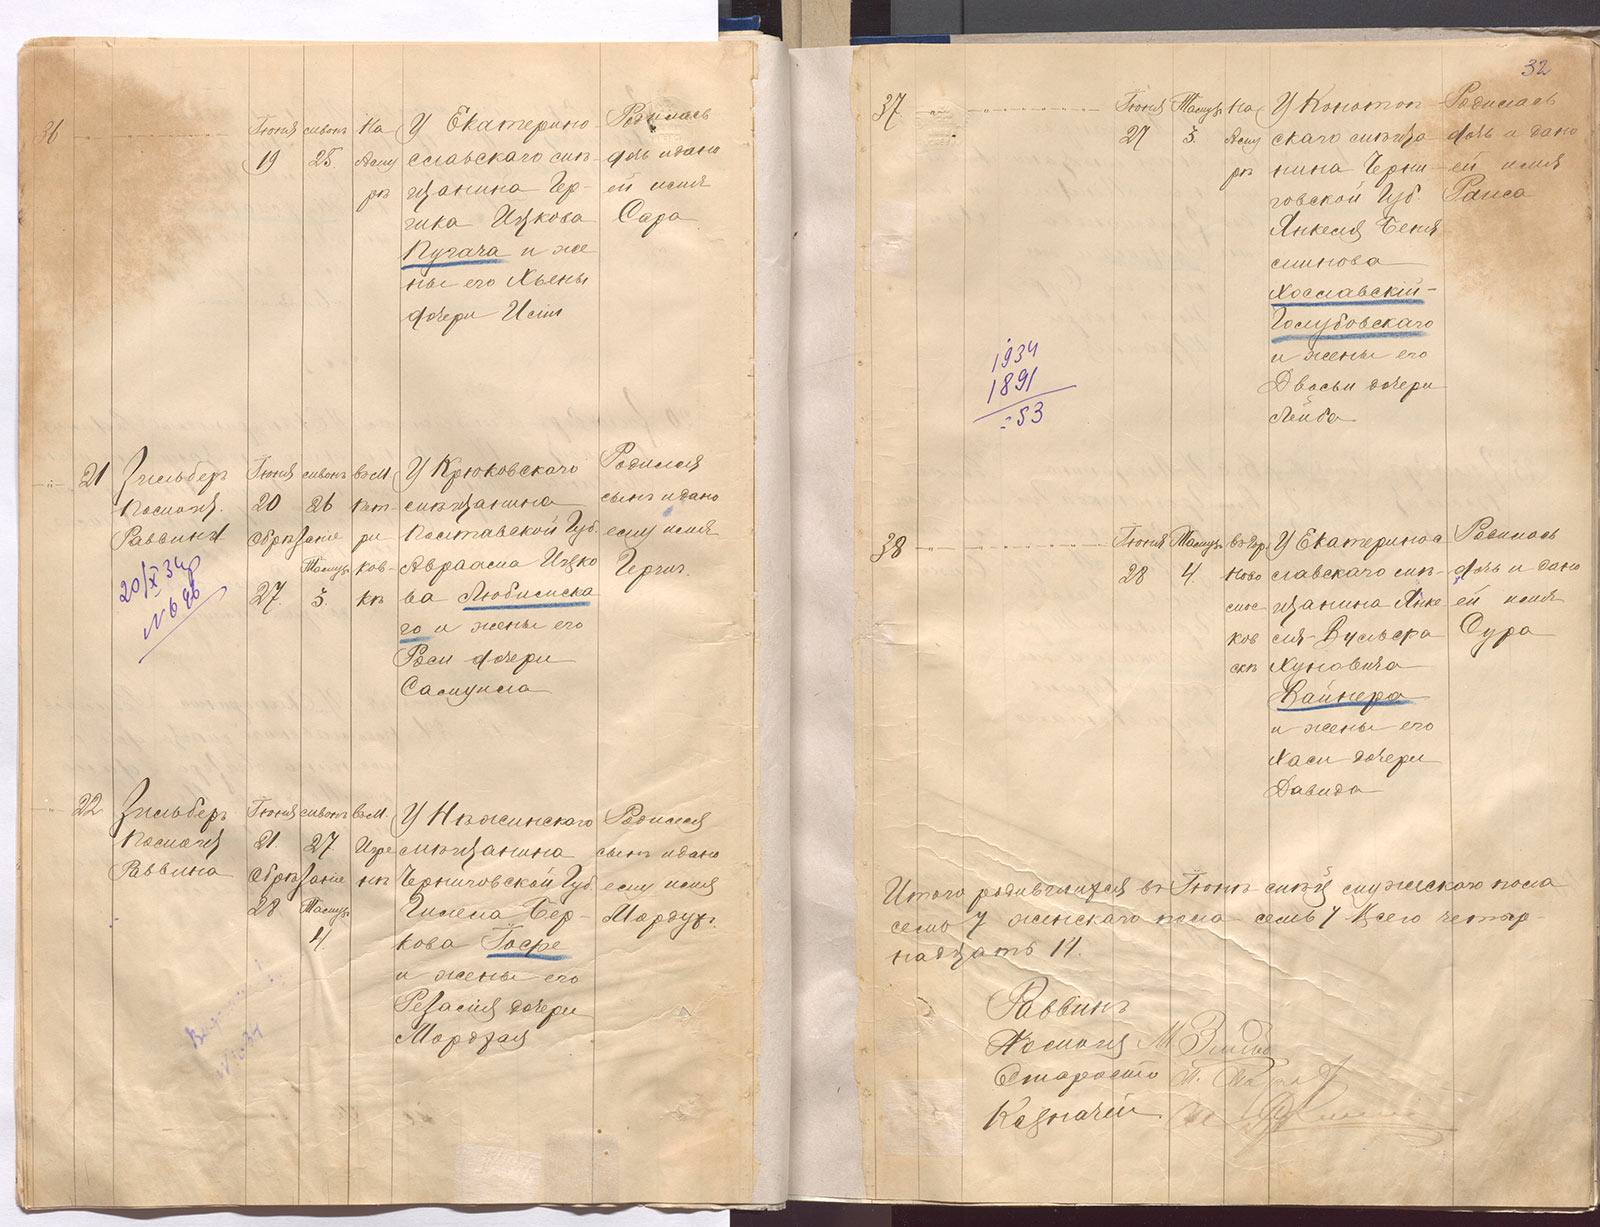 36
Іюня
19
сивонъ
25
На
Асму
рѣ
У Екатерино
славскаго мѣ-
щанина Гер-
шка Ицкова
Пугача и же
ны его Хьены
дочери
Родилась
дочь и дано
ей имя
Сара
21
Зильберъ
Помощ.
Раввина
20/X 34
Іюня
20
сивонъ
26
обрѣзаніе
Тамузъ
27.
3.
въ м.
ков-
кѣ
У Крюковскаго
мѣщанина
Полтавской Губ.
Авраама Ицко
ва Любимска
го и жены его
Роси дочери
Самуила
Родился
сынъ и дано
ему имя
Герши.
22
Зильберъ
Помощ.
Раввина
Іюня
21.
сивонъ
27.
обрѣзаніе
28
Тамузъ
4.
въ м.
У Нѣжинскаго
мѣщанина
Черниговской Губ
Гилела Бер-
кова Госфе
и жены его
дочери
Мордхая
Родился
сынъ и дано
ему имя
Мордухъ.
32
37.
Іюня
27
Тамузъ
3.
На
Асму
рѣ
У Конотоп-
скаго мѣща
нина Черни-
говской Губ.
Янкеля Беня
минова
Хославскій-
Голубовскаго
и жены его
Двосьи дочери
Лейба
Родилась
дочь и дано
ей имя
Раиса
1934
1891
53
38
Іюня
28
Тамузъ
4.
въ гр.
Ново
мос
ков
скѣ
У Екатеринос
лавскаго мѣ-
щанина Янке
ля-Вульфа
Хуновича
Вайнера
и жены его
Хаси дочери
Давида
Родилась
дочь и дано
ей имя
Сура
Итого родившихся въ Іюнѣ мѣ-цѣ мужскаго пола
семь 7 женскаго пола семь 7 Всего четыр-
надцать 14.
Раввинъ
Помощ. М. Зильбер
Староста
Казначей